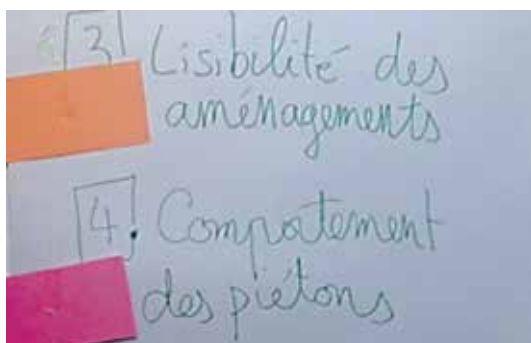 3 Lisibilité des
aménagements
4. Compotement
des piétons